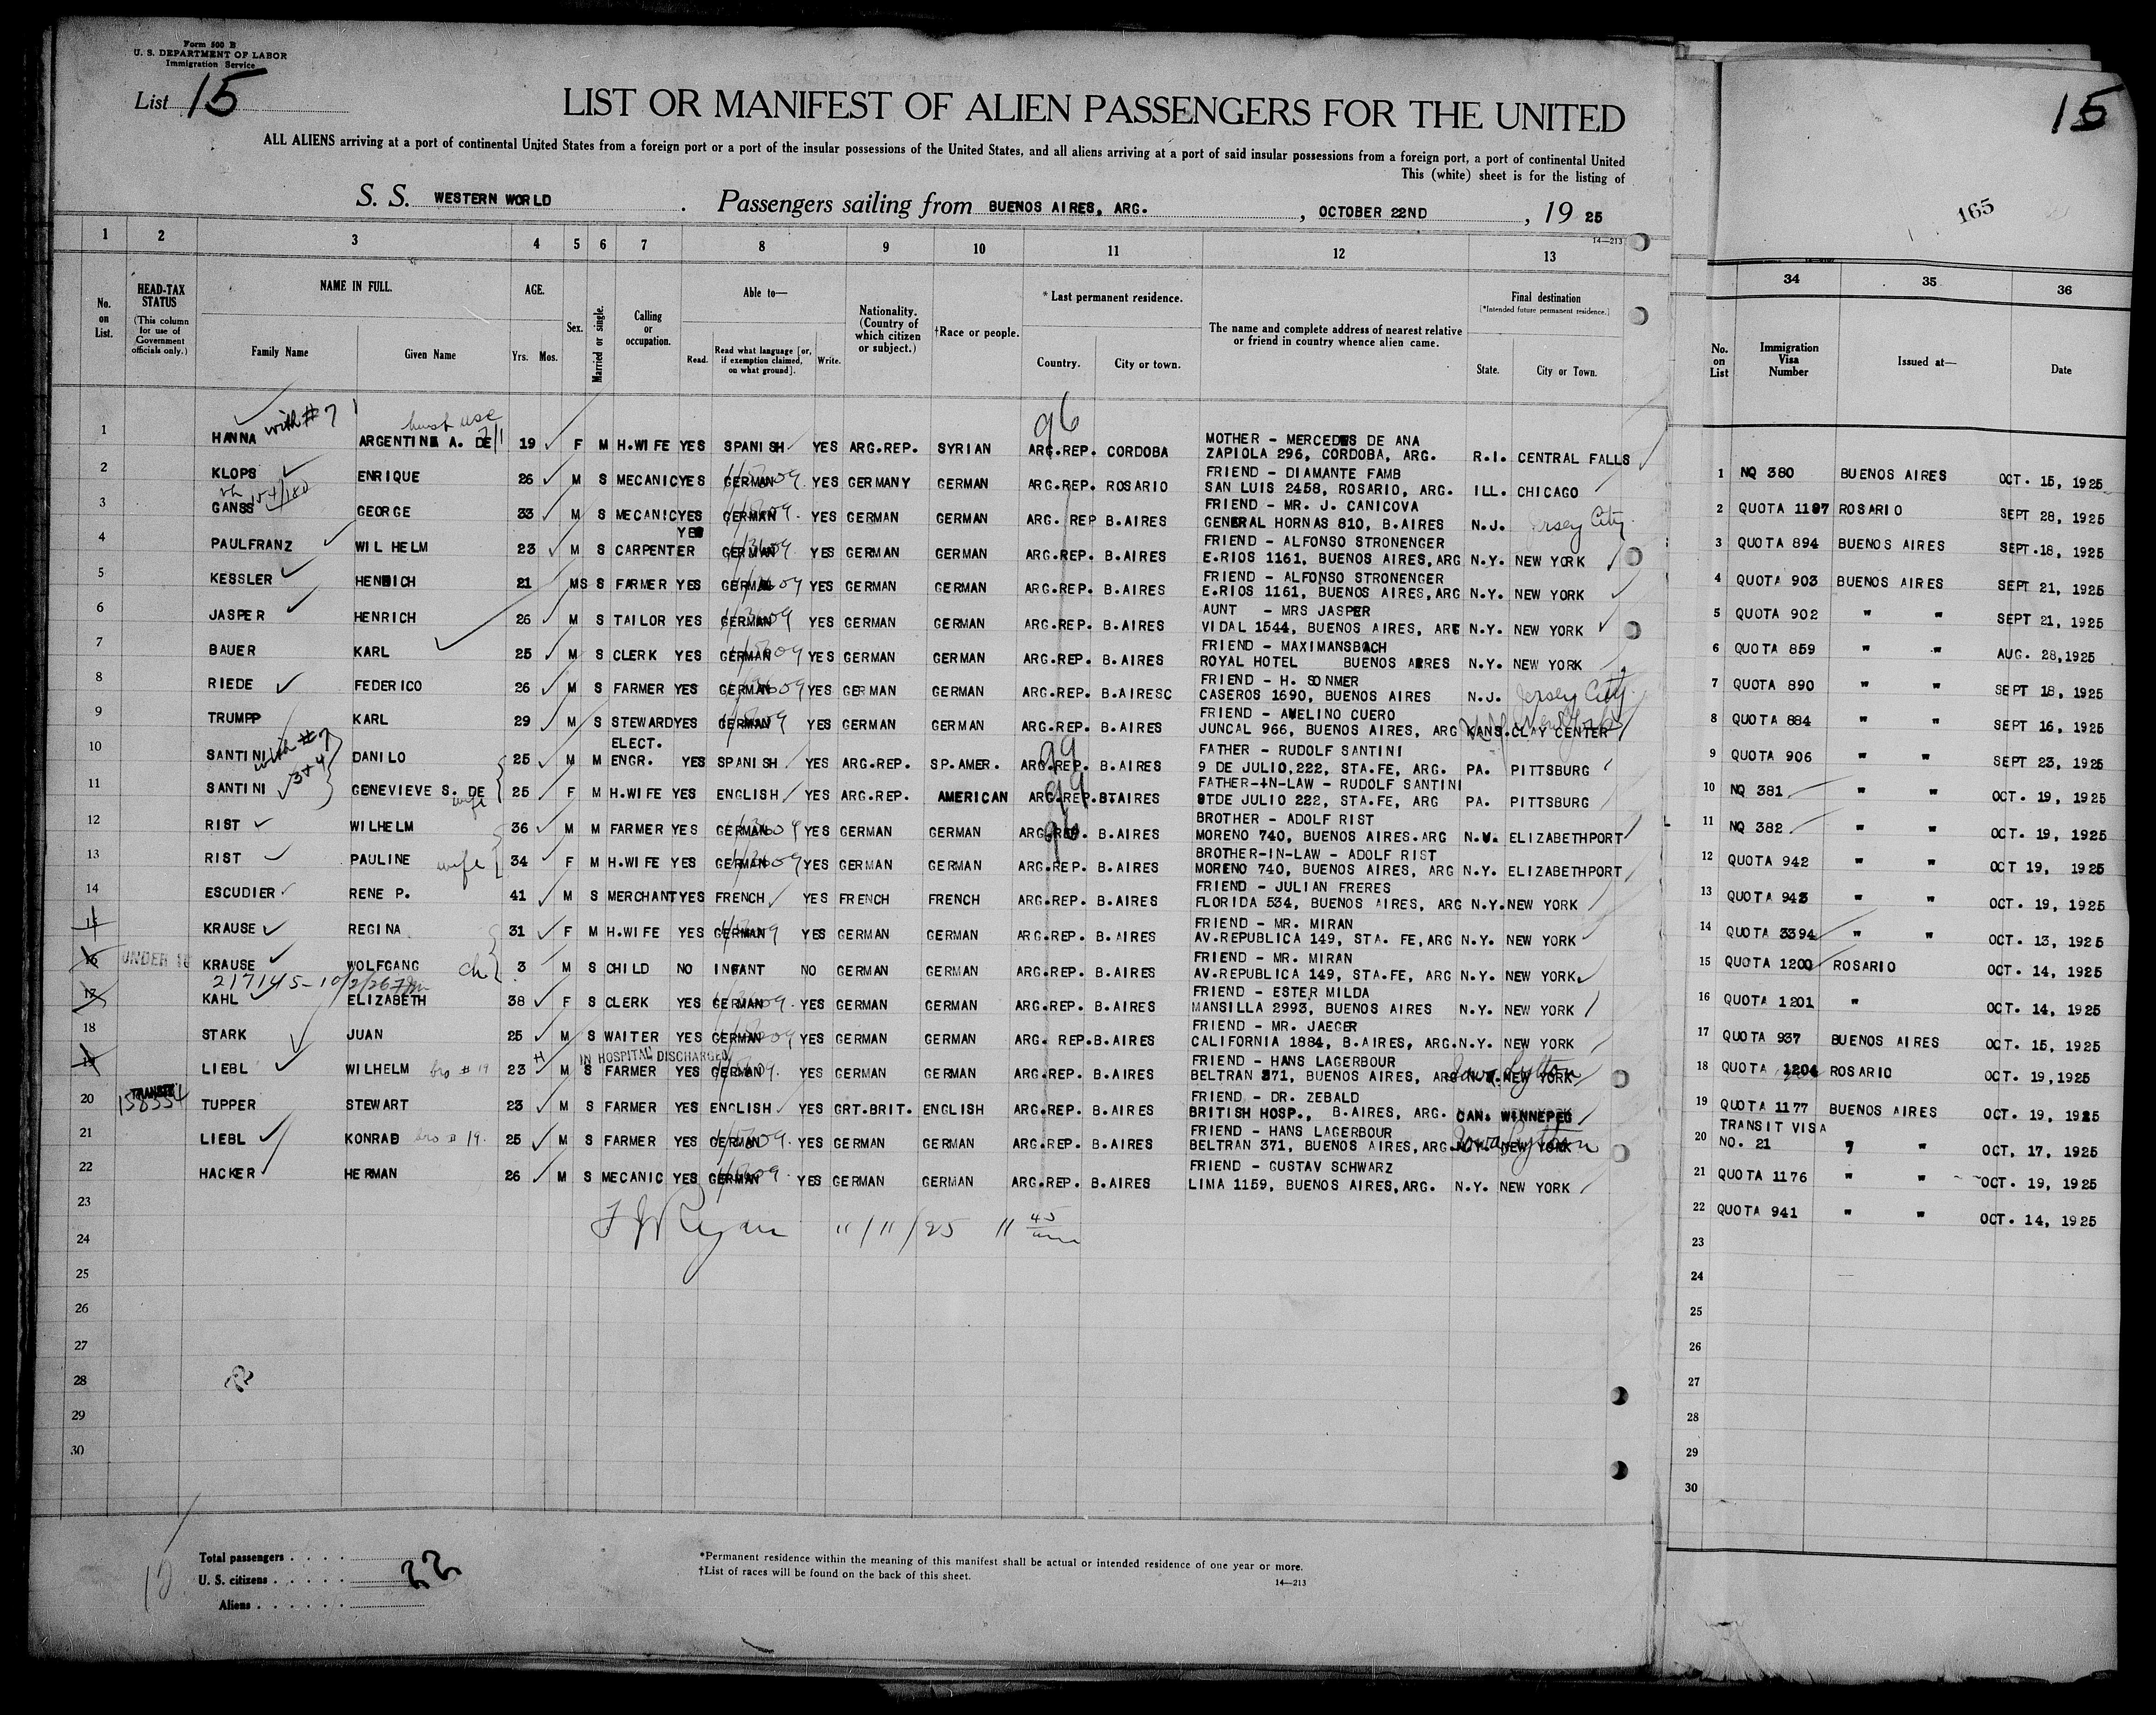 Form 500 B
U. S. DEPARTMENT OF LABOR
Immigration Service
List 15
LIST OR MANIFEST OF ALIEN PASSENGERS FOR THE UNITED
ALL ALIENS arriving at a port of continental United States from a foreign port or a port of the insular possessions of the United States, and all aliens arriving at a port of said insular possessions from a foreign port, a port of continental United
This (white) sheet is for the listing of
S. S. WESTERN WORLD . Passengers sailing from BUENOS AIRES, ARG. , OCTOBER 22ND , 19 25
14—213
1 2 3 4 5 6 7 8 9 10 11 12 13
No. on List.
HEAD-TAX STATUS (This column for use of Government officials only.)
NAME IN FULL. Family Name Given Name
AGE. Yrs. Mos.
Sex.
Married or single.
Calling or occupation.
Able to— Read. Read what language [or, if exemption claimed, on what ground]. Write.
Nationality. (Country of which citizen or subject.)
†Race or people.
*Last permanent residence. Country. City or town.
The name and complete address of nearest relative or friend in country whence alien came.
Final destination [*Intended future permanent residence.] State. City or Town.
with #7
96
1 HANNA ARGENTINA A. DE 19 F M H.WIFE YES SPANISH YES ARG.REP. SYRIAN ARG.REP. CORDOBA MOTHER - MERCEDES DE ANA
ZAPIOLA 296, CORDOBA, ARG. R.I. CENTRAL FALLS
2 KLOPS ENRIQUE 26 M S MECANIC YES GERMAN YES GERMANY GERMAN ARG.REP. ROSARIO FRIEND - DIAMANTE FAMB
SAN LUIS 2458, ROSARIO, ARG. ILL. CHICAGO
3 GANSS GEORGE 33 M S MECANIC YES GERMAN YES GERMAN GERMAN ARG. REP B.AIRES FRIEND - MR. J. CANICOVA
GENERAL HORNAS 810, B.AIRES N.J. Jersey City
4 PAULFRANZ WILHELM 23 M S CARPENTER YES GERMAN YES GERMAN GERMAN ARG.REP. B.AIRES FRIEND - ALFONSO STRONENGER
E.RIOS 1161, BUENOS AIRES,ARG N.Y. NEW YORK
5 KESSLER 21 MS S FARMER YES GERMAN YES GERMAN GERMAN ARG.REP. B.AIRES FRIEND - ALFONSO STRONENGER
E.RIOS 1161, BUENOS AIRES,ARG N.Y. NEW YORK
6 JASPER HENRICH 26 M S TAILOR YES GERMAN YES GERMAN GERMAN ARG.REP. B.AIRES AUNT - MRS JASPER
VIDAL 1544, BUENOS AIRES, ARG N.Y. NEW YORK
7 BAUER KARL 25 M S CLERK YES GERMAN YES GERMAN GERMAN ARG.REP. B.AIRES FRIEND - MAXIMANSBACH
ROYAL HOTEL BUENOS AIRES N.Y. NEW YORK
8 RIEDE FEDERICO 26 M S FARMER YES GERMAN YES GERMAN GERMAN ARG.REP. B.AIRESC FRIEND - H. SONMER
CASEROS 1690, BUENOS AIRES N.J. Jersey City
9 TRUMPP KARL 29 M S STEWARD YES GERMAN YES GERMAN GERMAN ARG.REP. B.AIRES FRIEND - AVELINO CUERO
JUNCAL 966, BUENOS AIRES, ARG KANS. CLAY CENTER N.Y. New York
with #7
99
10 SANTINI DANILO 25 M M ELECT. ENGR. YES SPANISH YES ARG.REP. SP.AMER. ARG.REP. B.AIRES FATHER - RUDOLF SANTINI
9 DE JULIO,222, STA.FE, ARG. PA. PITTSBURG
3+4
99
11 SANTINI GENEVIEVE S. DE wife 25 F M H.WIFE YES ENGLISH YES ARG.REP. AMERICAN ARG.REP. B.AIRES FATHER-IN-LAW - RUDOLF SANTINI
9 DE JULIO 222, STA.FE, ARG PA. PITTSBURG
96
12 RIST WILHELM 36 M M FARMER YES GERMAN YES GERMAN GERMAN ARG.REP. B.AIRES BROTHER - ADOLF RIST
MORENO 740, BUENOS AIRES.ARG ELIZABETHPORT
13 RIST PAULINE wife 34 F M H.WIFE YES GERMAN YES GERMAN GERMAN ARG.REP. B.AIRES BROTHER-IN-LAW - ADOLF RIST
MORENO 740, BUENOS AIRES, ARG N.Y. ELIZABETHPORT
14 ESCUDIER RENE P. 41 M S MERCHANT YES FRENCH YES FRENCH FRENCH ARG.REP. B.AIRES FRIEND - JULIAN FRERES
FLORIDA 534, BUENOS AIRES, ARG N.Y. NEW YORK
15 KRAUSE REGINA 31 F M H.WIFE YES GERMAN YES GERMAN GERMAN ARG.REP. B.AIRES FRIEND - MR. MIRAN
AV.REPUBLICA 149, STA. FE,ARG N.Y. NEW YORK
16 UNDER 16 KRAUSE WOLFGANG ch 3 M S CHILD NO INFANT NO GERMAN GERMAN ARG.REP. B.AIRES FRIEND - MR. MIRAN
AV.REPUBLICA 149, STA.FE, ARG N.Y. NEW YORK
217145-10/2/26
17 KAHL ELIZABETH 38 F S CLERK YES GERMAN YES GERMAN GERMAN ARG.REP. B.AIRES FRIEND - ESTER MILDA
MANSILLA 2993, BUENOS AIRES N.Y. NEW YORK
18 STARK JUAN 25 M S WAITER YES GERMAN YES GERMAN GERMAN ARG. REP. B.AIRES FRIEND - MR. JAEGER
CALIFORNIA 1884, B.AIRES, ARG. N.Y. NEW YORK
IN HOSPITAL DISCHARGED
19 LIEBL WILHELM bro # 19 23 M S FARMER YES GERMAN YES GERMAN GERMAN ARG.REP. B.AIRES FRIEND - HANS LAGERBOUR
BELTRAN 371, BUENOS AIRES, ARG N.Y. NEW YORK Iowa Lytton
20 TRANSIT 158554 TUPPER STEWART 23 M S FARMER YES ENGLISH YES GRT.BRIT. ENGLISH ARG.REP. B.AIRES FRIEND - DR. ZEBALD
BRITISH HOSP., B.AIRES, ARG. CAN. WINNEPEG
21 LIEBL KONRAD bro # 19. 25 M S FARMER YES GERMAN YES GERMAN GERMAN ARG.REP. B.AIRES FRIEND - HANS LAGERBOUR
BELTRAN 371, BUENOS AIRES, ARG N.Y. NEW YORK Iowa Lytton
22 HACKER HERMAN 26 M S MECANIC YES GERMAN YES GERMAN GERMAN ARG.REP. B.AIRES FRIEND - GUSTAV SCHWARZ
LIMA 1159, BUENOS AIRES,ARG. N.Y. NEW YORK
23
11/11/25 11 45
24
25
26
27
28
29
30
Total passengers . . . .
U. S. citizens . . . . . 22
Aliens . . . . . .
*Permanent residence within the meaning of this manifest shall be actual or intended residence of one year or more.
†List of races will be found on the back of this sheet.
14—213
15
165
34 35 36
No. on List
Immigration Visa Number
Issued at—
Date
1 NQ 380 BUENOS AIRES OCT. 15, 1925
2 QUOTA 1187 ROSARIO SEPT 28, 1925
3 QUOTA 894 BUENOS AIRES SEPT.18, 1925
4 QUOTA 903 BUENOS AIRES SEPT 21, 1925
5 QUOTA 902 " " SEPT 21, 1925
6 QUOTA 859 " " AUG. 28,1925
7 QUOTA 890 " " SEPT 18, 1925
8 QUOTA 884 " " SEPT 16, 1925
9 QUOTA 906 " " SEPT 23, 1925
10 NQ 381 " " OCT. 19, 1925
11 NQ 382 " " OCT. 19, 1925
12 QUOTA 942 " " OCT 19, 1925
13 QUOTA 943 " " OCT. 19, 1925
14 QUOTA 3394 " " OCT. 13, 1925
15 QUOTA 1200 ROSARIO OCT. 14, 1925
16 QUOTA 1201 " OCT. 14, 1925
17 QUOTA 937 BUENOS AIRES OCT. 15, 1925
18 QUOTA 1204 ROSARIO OCT. 19,1925
19 QUOTA 1177 BUENOS AIRES OCT. 19, 1925
20 TRANSIT VISA
NO. 21 " " OCT, 17, 1925
21 QUOTA 1176 " " OCT. 19, 1925
22 QUOTA 941 " " OCT. 14, 1925
23
24
25
26
27
28
29
30